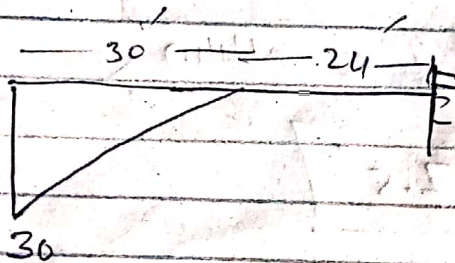 30 24
30